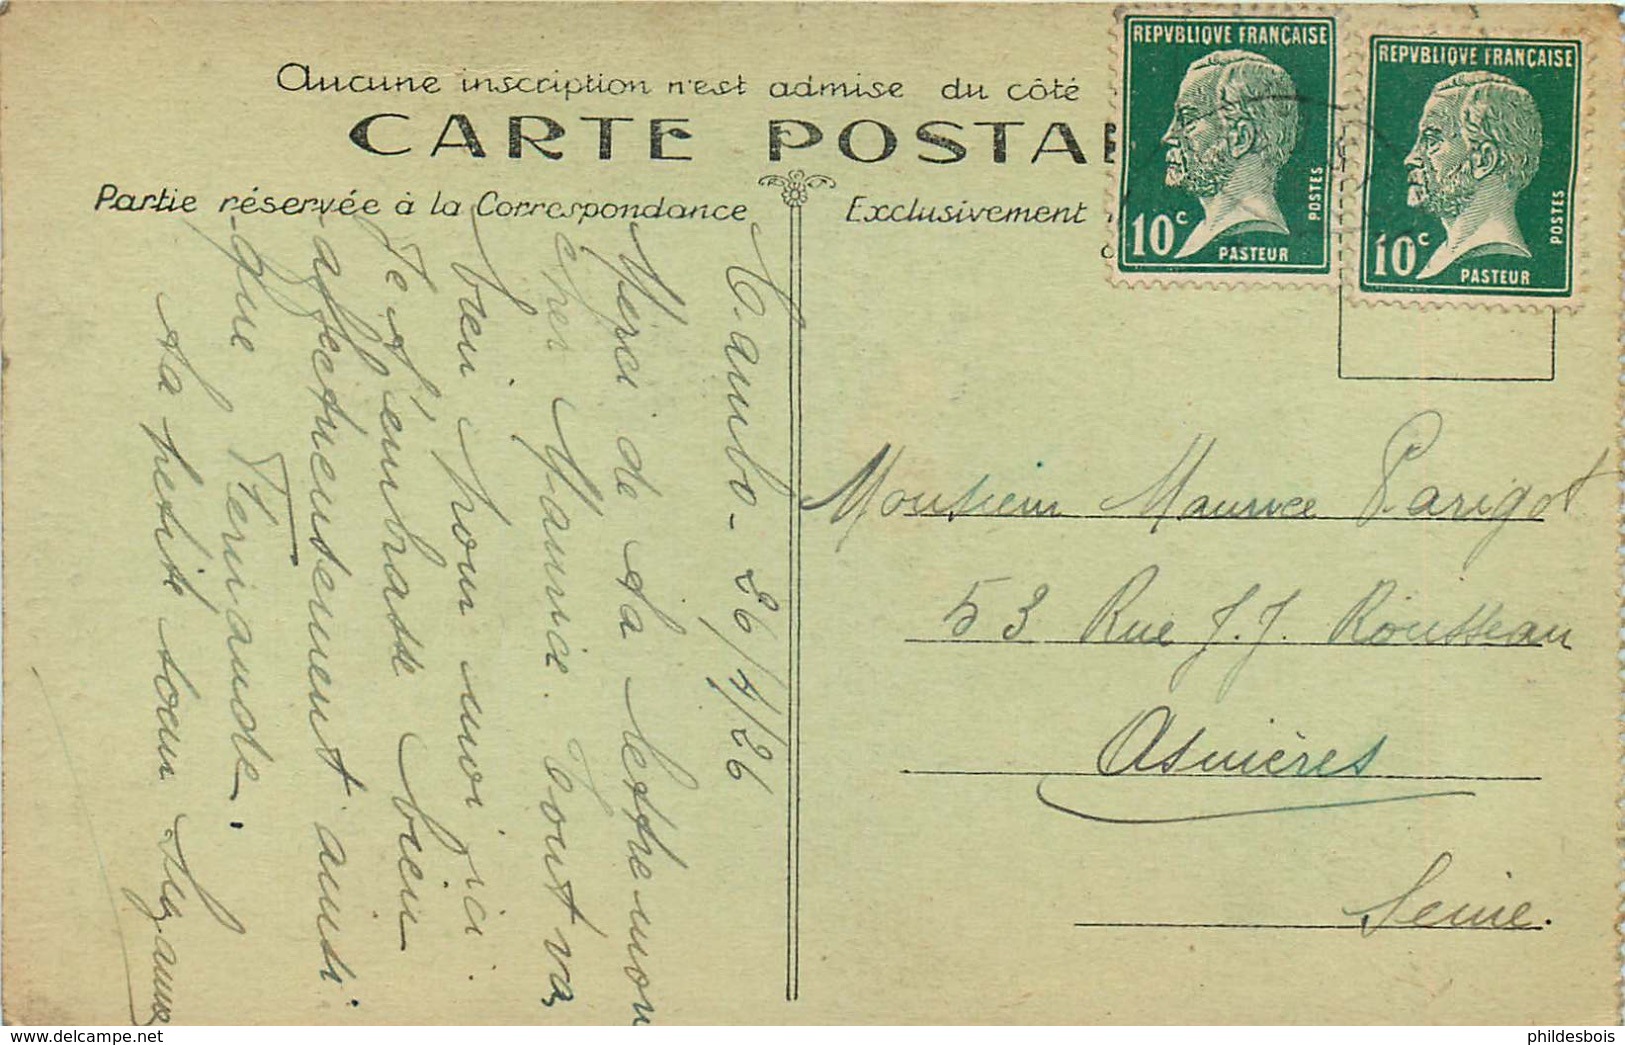 Aucune inscription n'est admise du côté
CARTE POSTA
Partie réservée à la Correspondance
Exclusivement
REPVBLIQVE FRANÇAISE
10c
POSTES
PASTEUR
REPVBLIQVE FRANÇAISE
10c
POSTES
PASTEUR
Cambo - 26/4/26
Merci de ta lettre mon
cher Maurice. Tout va
bien pour moi ici.
Je t'embrasse bien
affectueusement ainsi
que Fernande.
Ta petite soeur Suzanne
Monsieur Maurice Parigot
53 Rue J.J. Rousseau
Asnières
Seine.
phildesbois